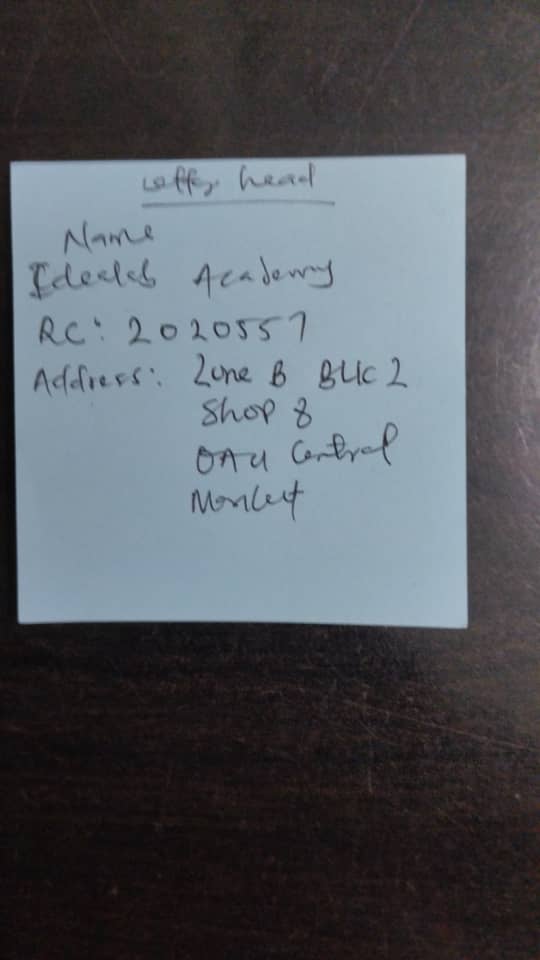 Letter head
Name
Idealab Academy
RC: 2020557
Address: Zone B BLK 2
Shop 8
OAU Central
Market